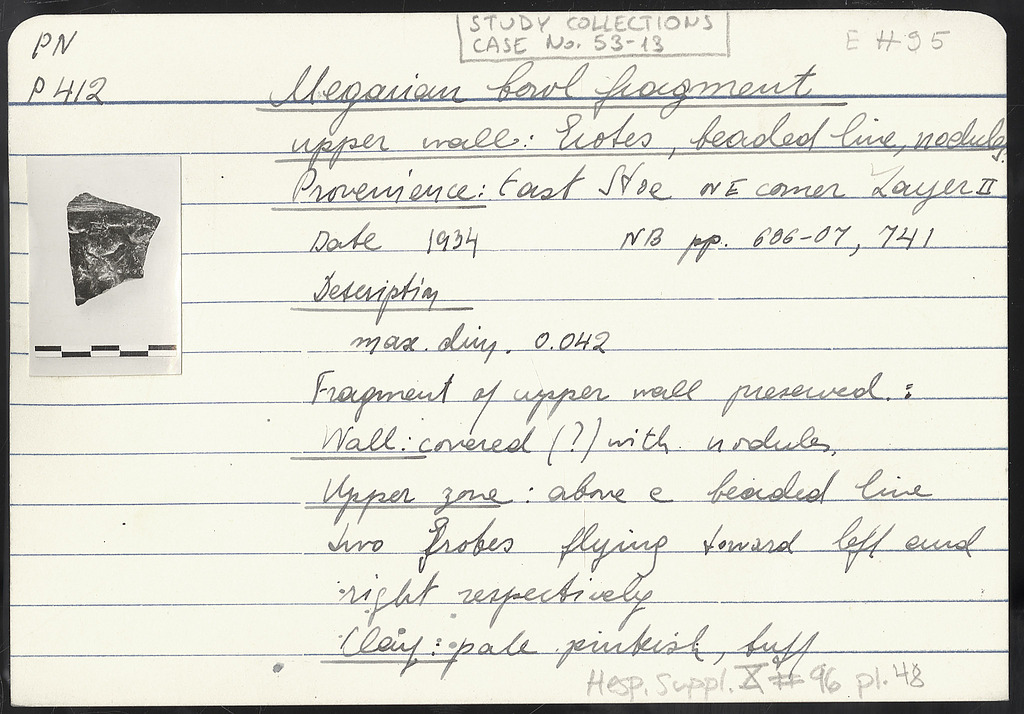 STUDY COLLECTIONS
CASE No. 53-13
E #95
PN
P 412
Megarian bowl fragment
upper wall: Erotes, beaded line, nodules
Provenience: East Stoe NE corner Layer II
Date 1934 NB pp. 686-07, 741
Description
max. dim. 0.042
Fragment of upper wall preserved.:
Wall: covered (?) with nodules.
Upper zone: above a beaded line
two Erotes flying toward left and
right respectively
Clay: pale pinkish, buff
Hesp. Suppl. X #96 pl. 48